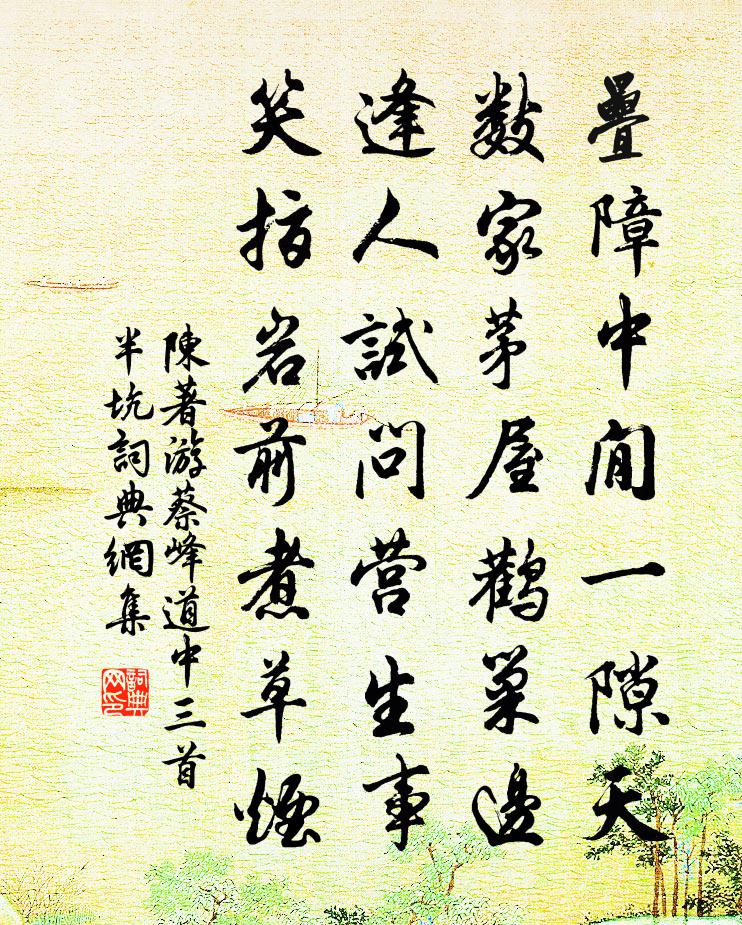 疊障中間一隙天
數家茅屋鸛巢邊
逢人試問營生事
笑指岩前煮草煙
陳著游蔡峰道中三首
半坑詞典網集
詞典网印